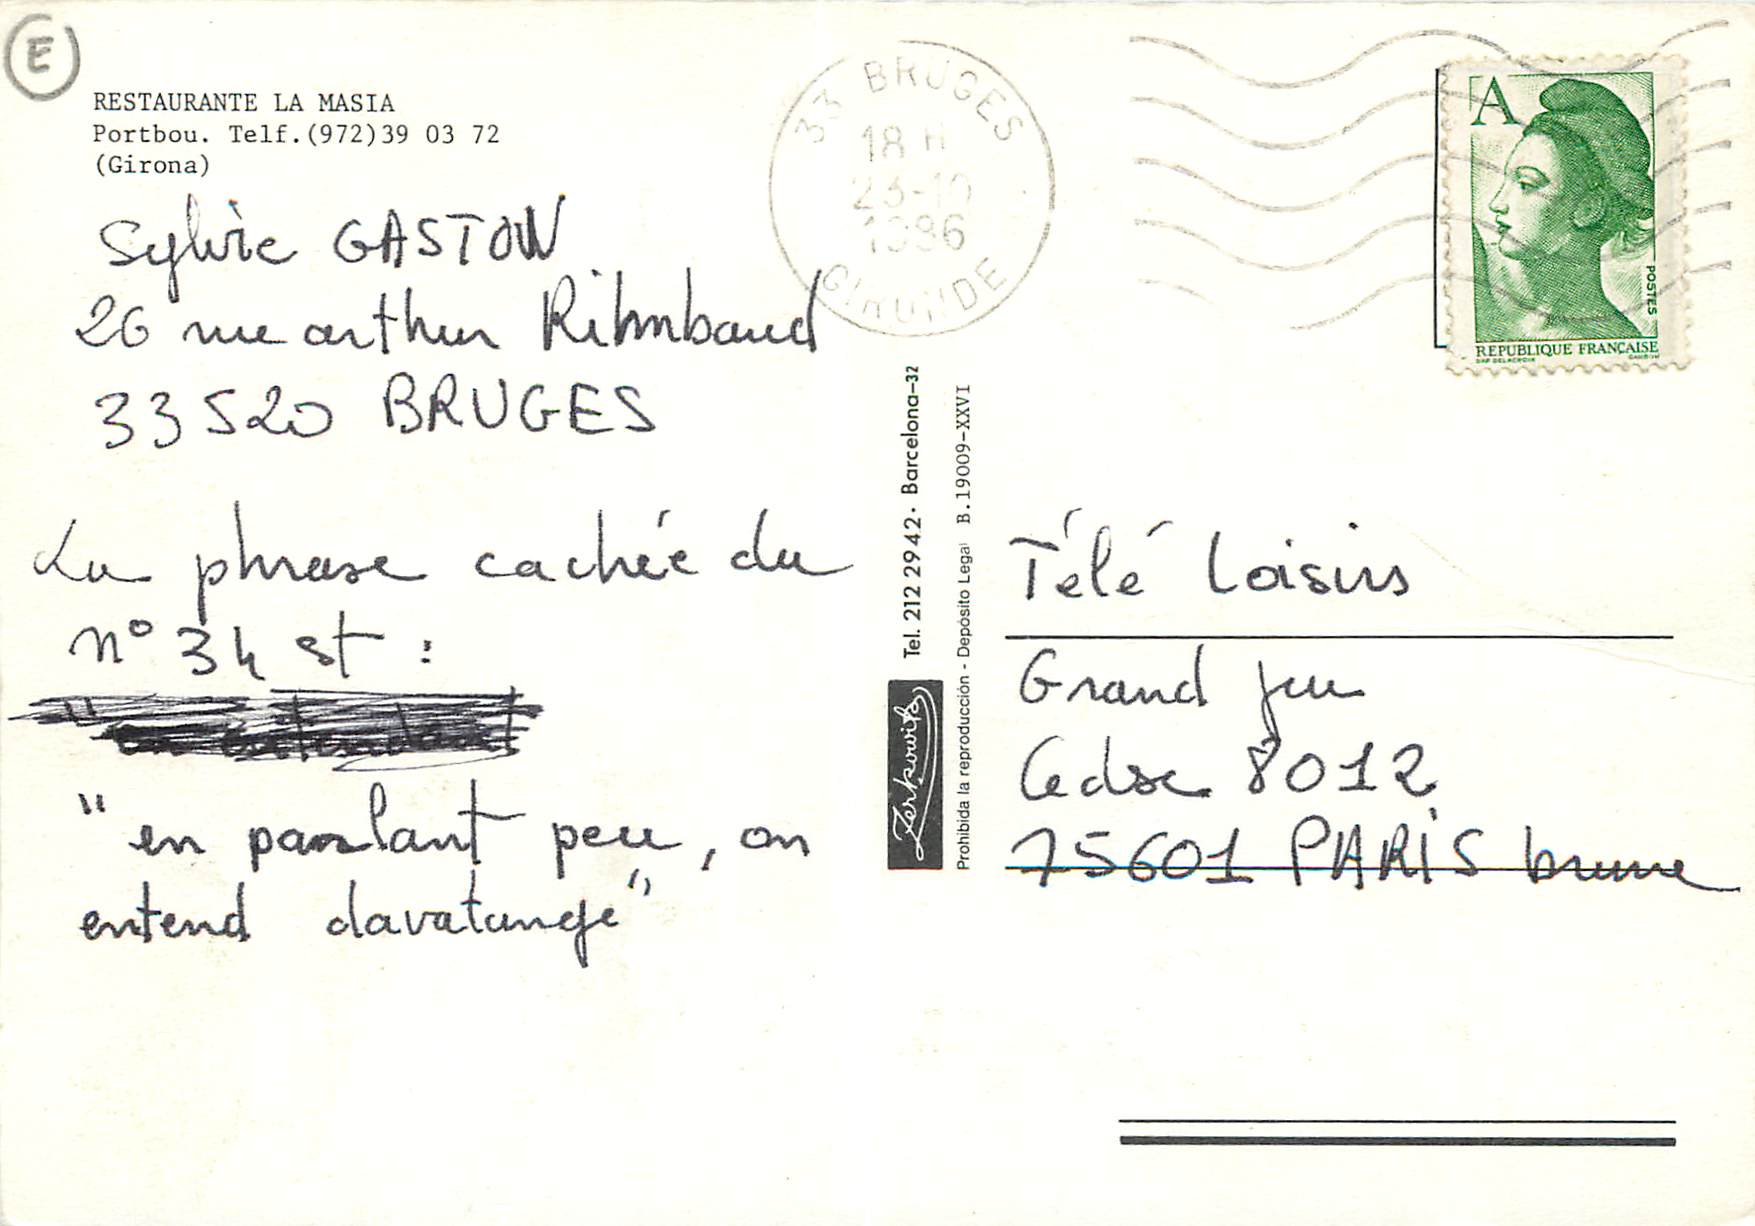 E
RESTAURANTE LA MASIA
Portbou. Telf.(972)39 03 72
(Girona)
Sylvie GASTON
26 rue arthur Rihmbaud
33520 BRUGES
La phrase cachée du
n° 34 st :
"en parlant peu, on
entend davatange"
33 BRUGES
18 H
23-10
1986
GIRONDE
A
POSTES
REPUBLIQUE FRANÇAISE
DAP. DELACROIX GANDON
Tel. 212 29 42 · Barcelona-32
Prohibida la reproducción - Depósito Legal B.19009-XXVI
Zerkowitz
Télé Loisirs
Grand Jeu
Cedse 8012
75601 PARIS brune